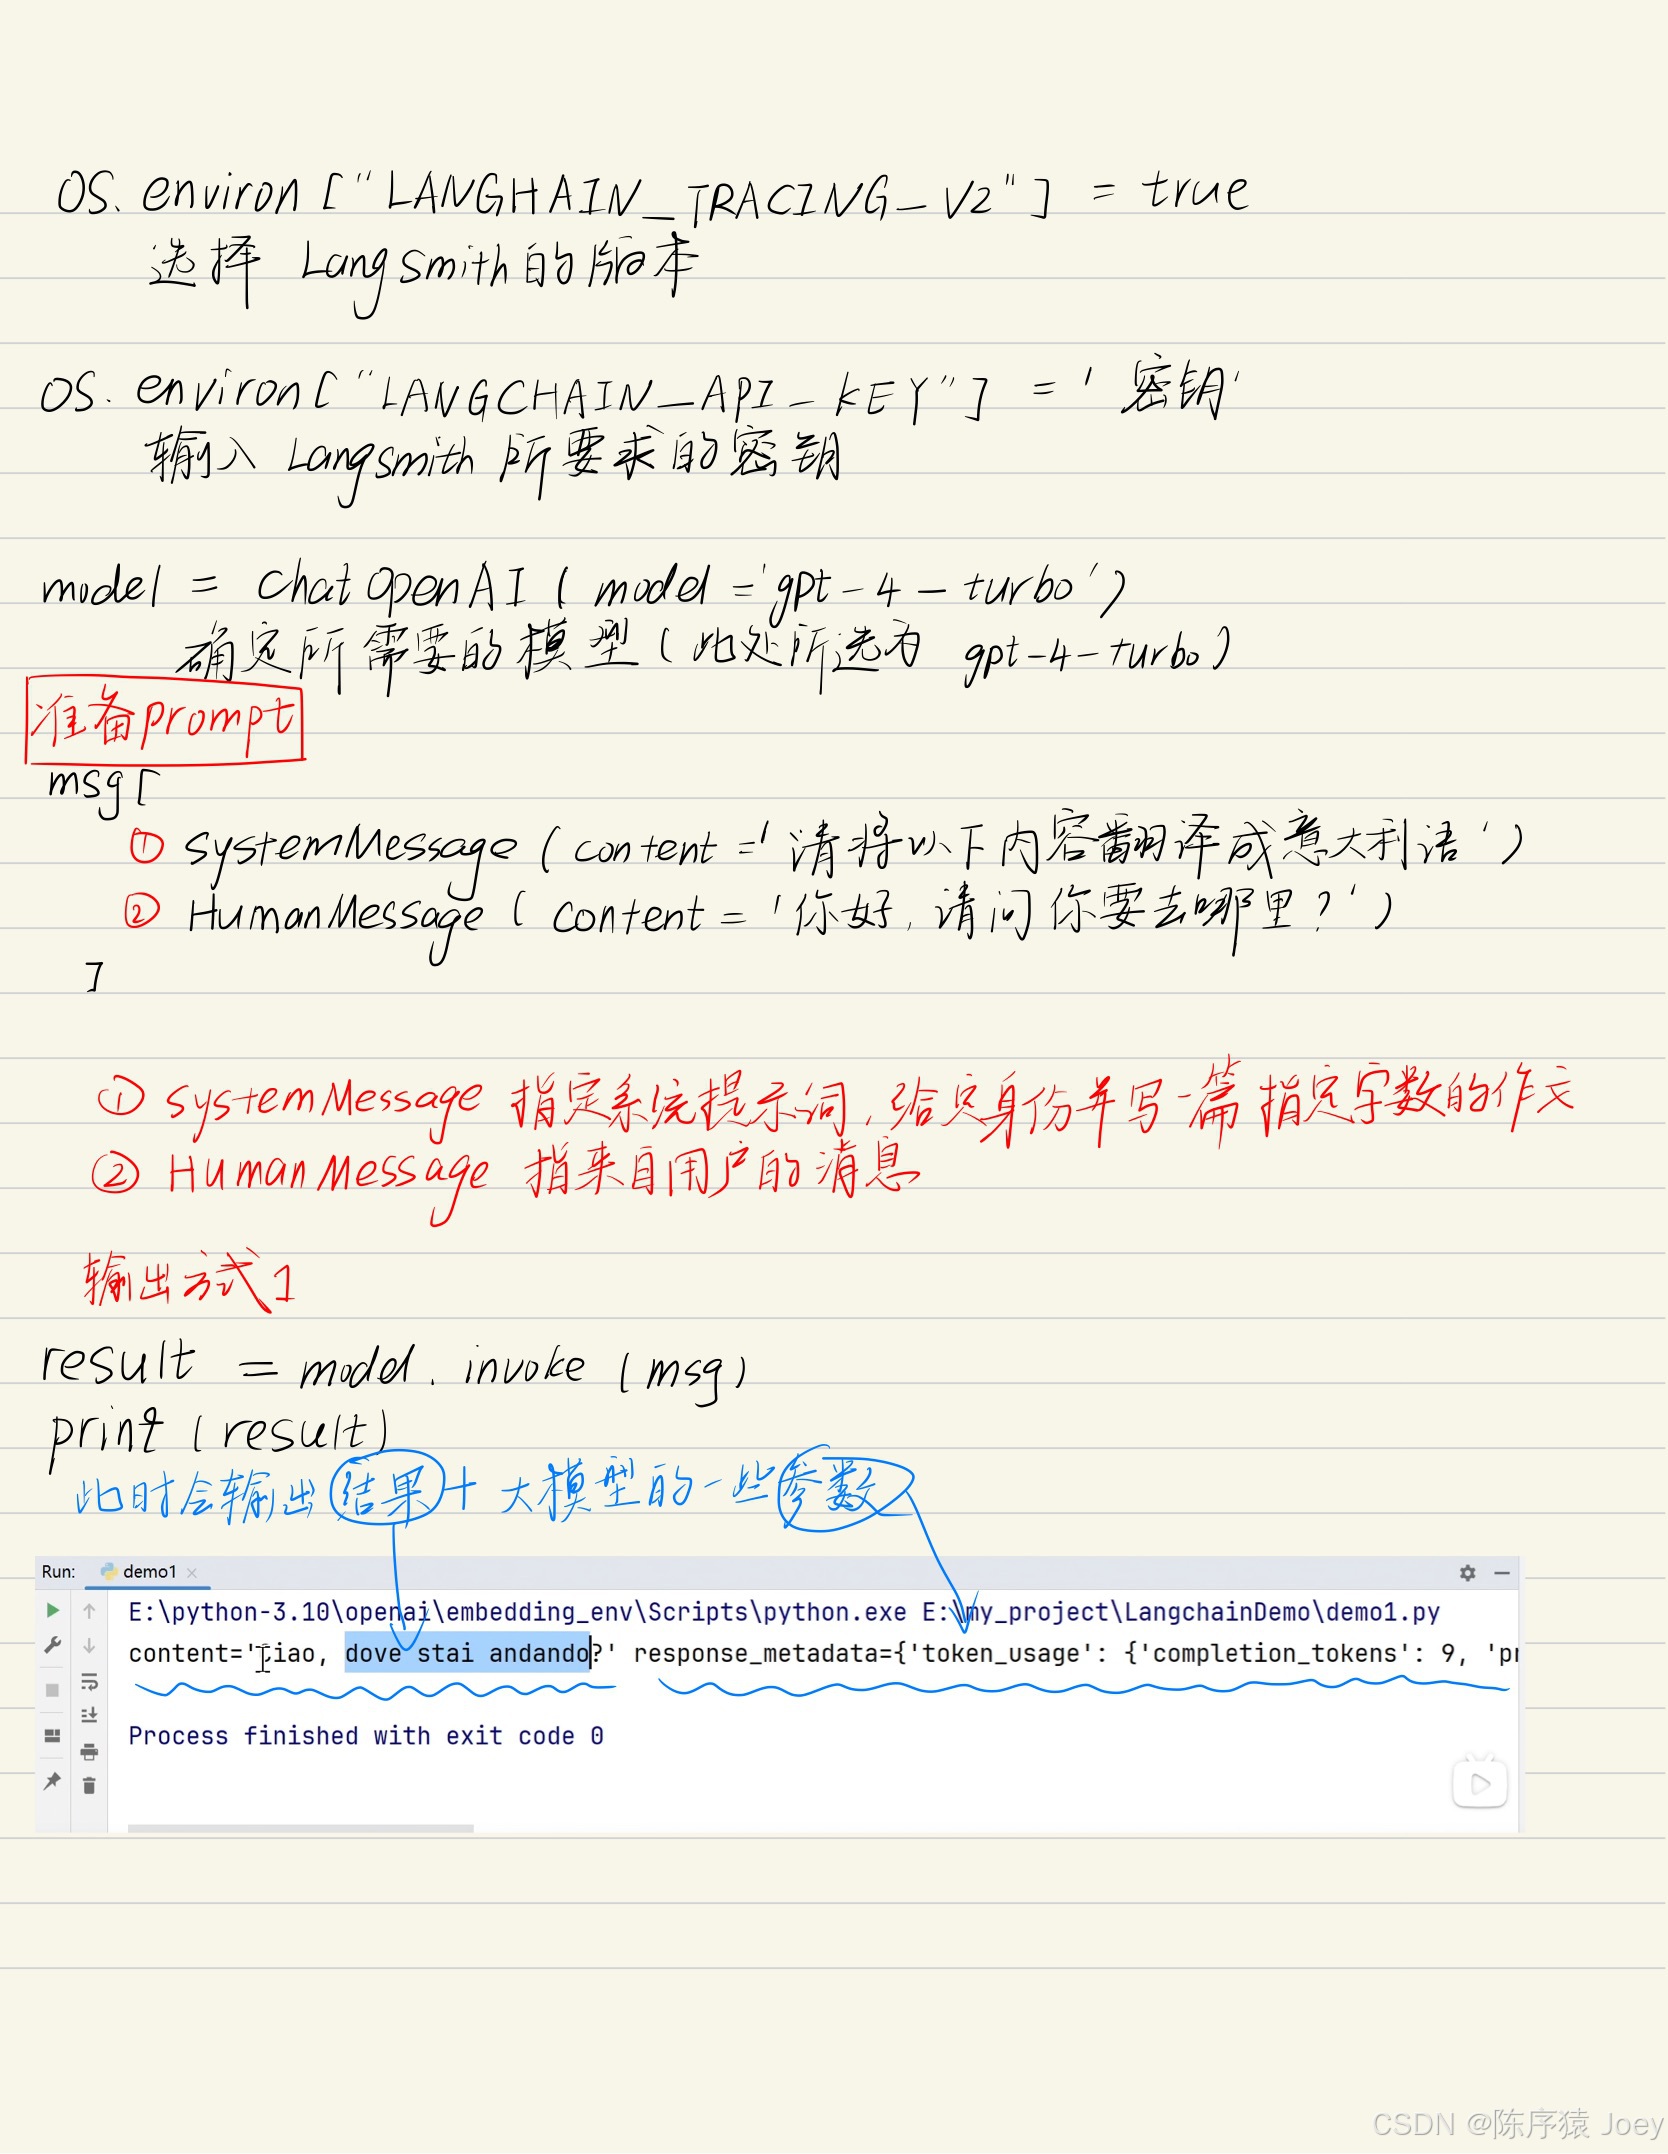 OS. environ ["LANGHAIN_TRACING_V2"] = true
选择 Langsmith的版本
OS. environ ["LANGCHAIN_API_KEY"] = '密钥'
输入 Langsmith 所要求的密钥
model = ChatOpenAI ( model = 'gpt-4-turbo' )
确定所需要的模型 ( 此处所选为 gpt-4-turbo )
准备prompt
msg [
① systemMessage ( content = '请将以下内容翻译成意大利语' )
② HumanMessage ( content = '你好, 请问你要去哪里?' )
]
① systemMessage 指定系统提示词, 给定身份并写一篇指定字数的作文
② HumanMessage 指来自用户的消息
输出方式1
result = model. invoke (msg)
print (result)
此时会输出 结果 + 大模型的一些参数
Run: demo1
E:\python-3.10\openai\embedding_env\Scripts\python.exe E:\my_project\LangchainDemo\demo1.py
content='Ciao, dove stai andando?' response_metadata={'token_usage': {'completion_tokens': 9, 'pr
Process finished with exit code 0
CSDN @陈序猿 Joey